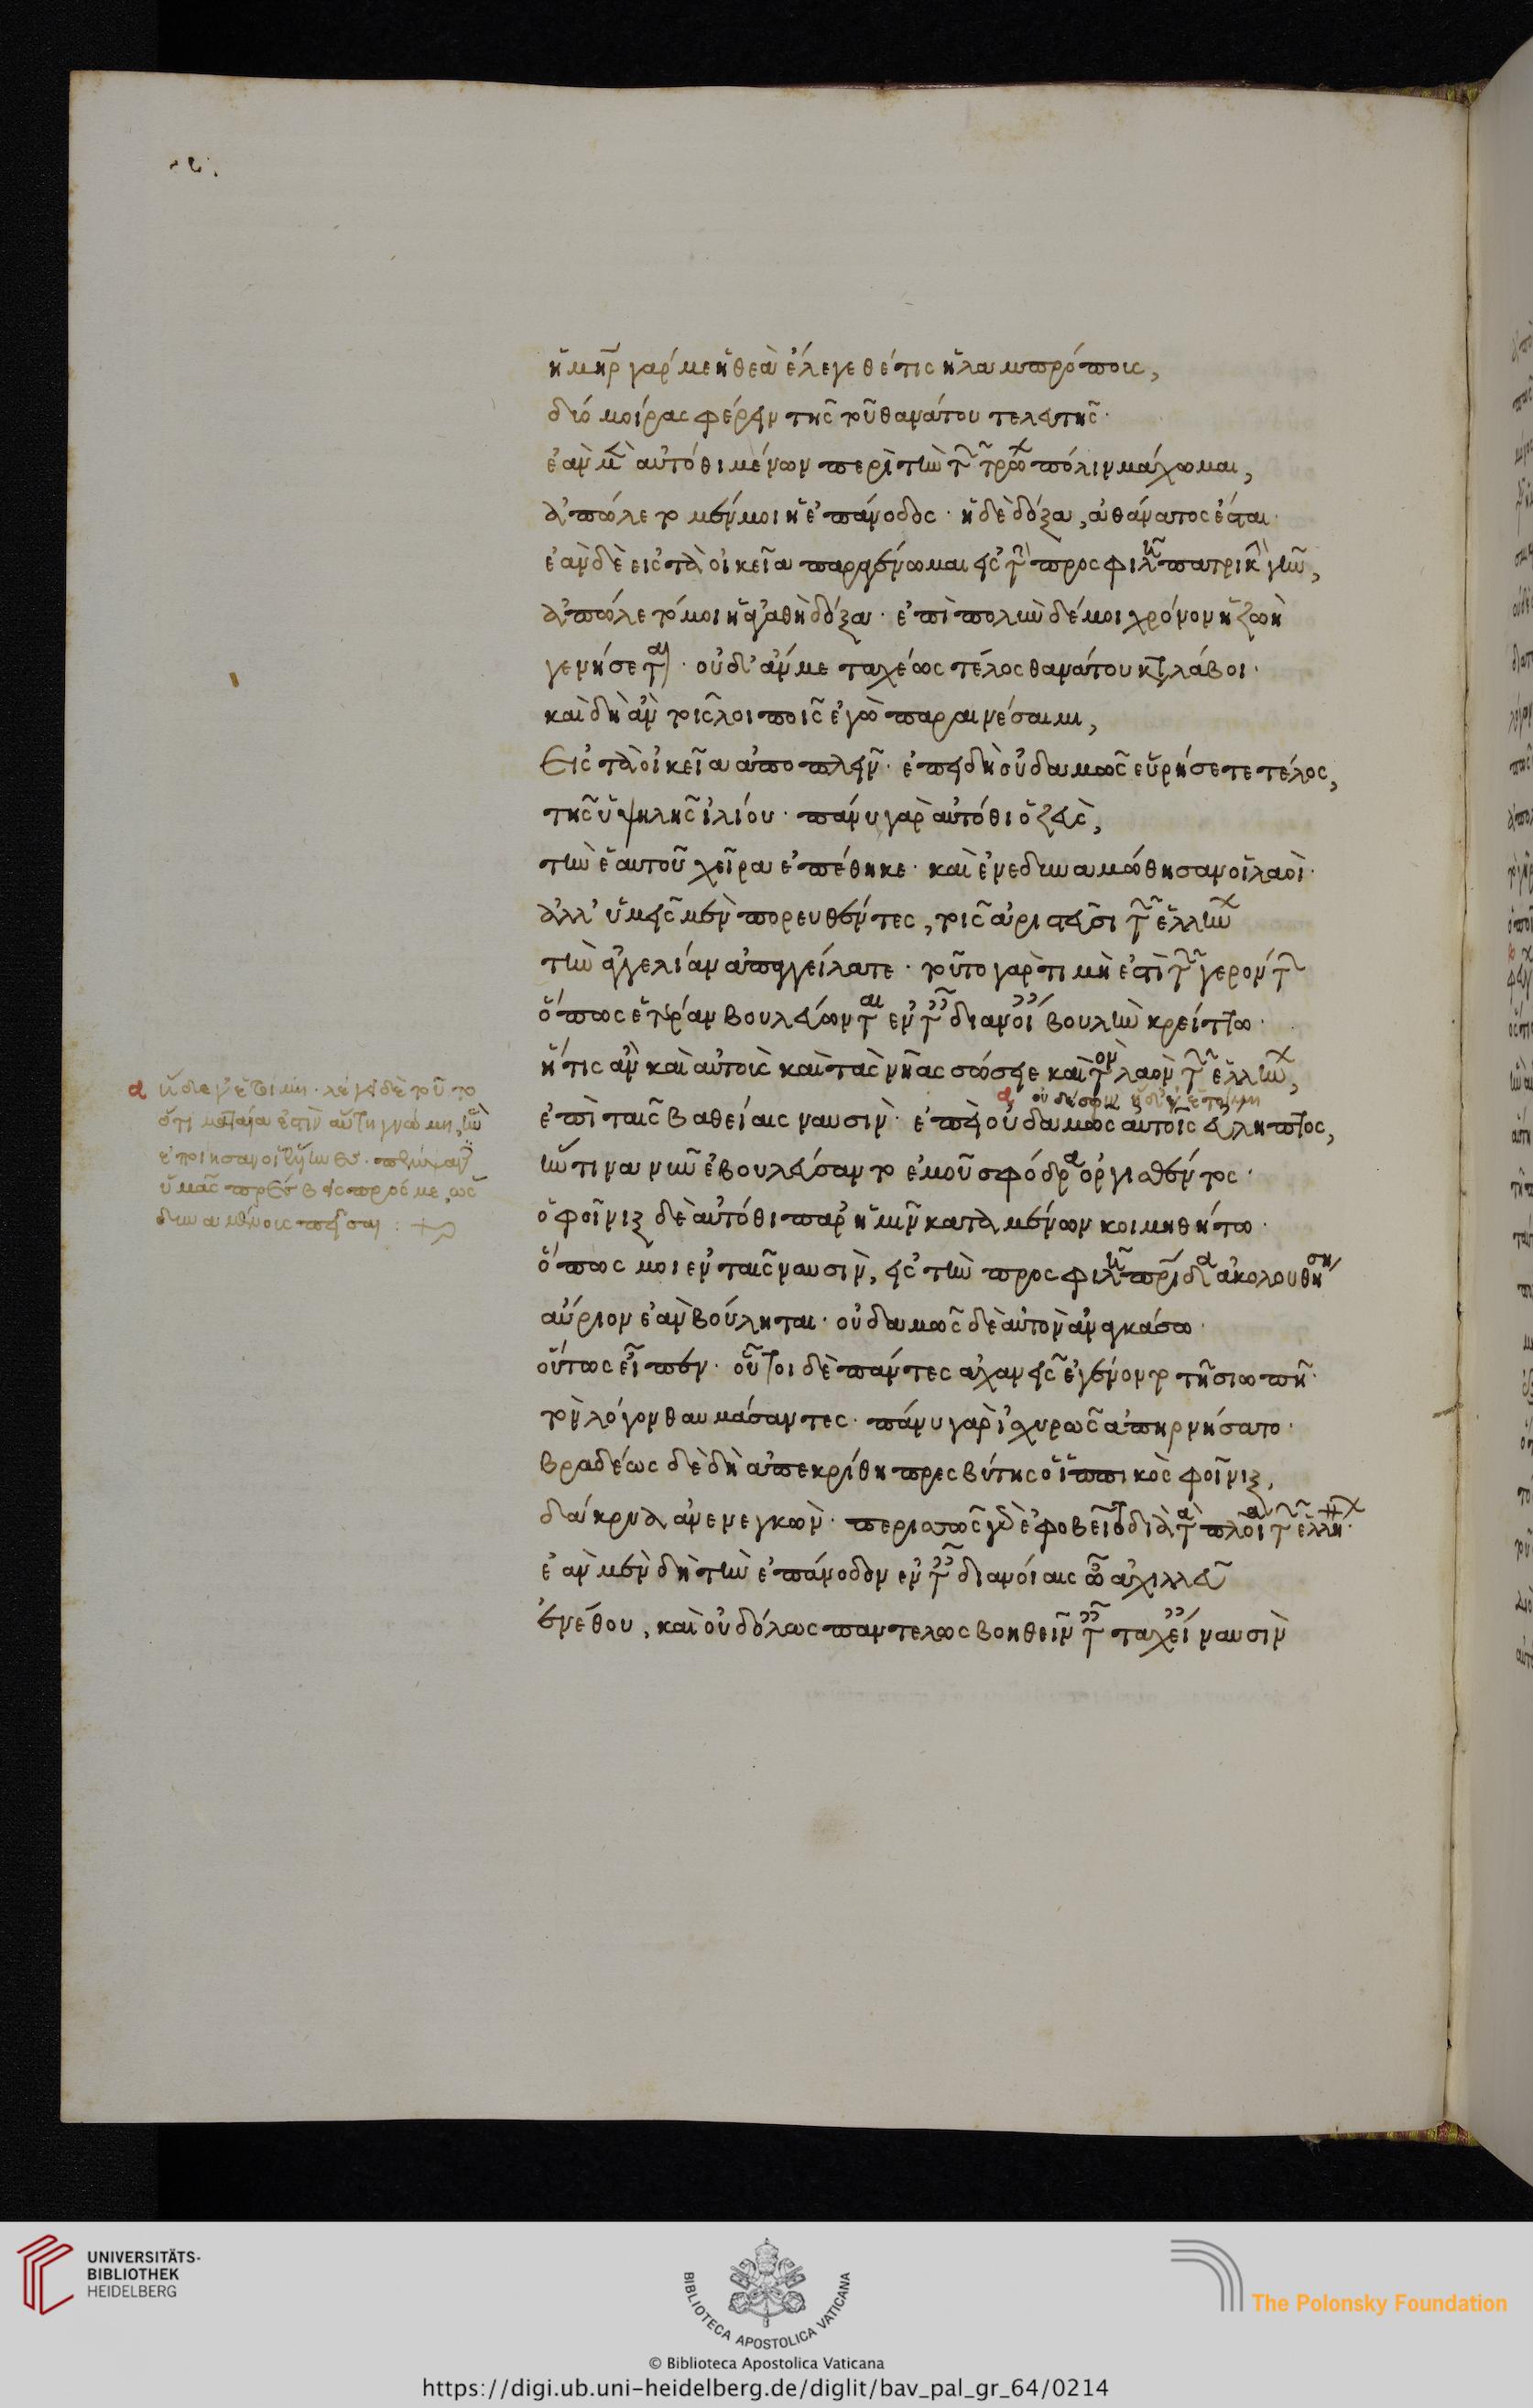 ἡ μηρ γάρ με ἡ θεὰ ἔλεγε θέτις ἡ λαμπρόπους,
διὸ μοίρας φέρειν τῆς τοῦ θανάτου τελευτῆς·
ἐὰν μὲ αὐτόθι μένων περὶ τὴν τ τρω πόλιν μάχωμαι,
ἀπώλετο μέν μοι ἡ ἐπάνοδος· ἡ δὲ δόξα, ἀθάνατος ἔσται·
ἐὰν δὲ εἰς τὰ οἰκεῖα παραγένωμαι εἰς τὴν προσφιλῆ πατρικὴν γῆν,
ἀπώλετό μοι ἡ ἀγαθὴ δόξα· ἐπὶ πολὺν δέ μοι χρόνον ἡ ζωὴ
γενήσεται· οὐδ' ἄν με ταχέως τέλος θανάτου καταλάβοι·
καὶ δὴ ἂν τοῖς λοιποῖς ἐγὼ παραινέσαιμι,
Εἰς τὰ οἰκεῖα ἀποπλεῖν· ἐπειδὴ οὐδαμῶς εὑρήσετε τέλος,
τῆς ὑψηλῆς ἰλίου· πάνυ γὰρ αὐτόθι ὁ ζεὺς,
τὴν ἑαυτοῦ χεῖρα ἐπέθηκε· καὶ ἐνεδυναμώθησαν οἱ λαοὶ·
ἀλλ' ὑμεῖς μὲν πορευθέντες, τοῖς ἀριστεῦσι τῶν ἑλλήνων
τὴν ἀγγελίαν ἀπαγγείλατε· τοῦτο γὰρ τιμὴ ἐστὶ τῶν γερόντων
ὅπως ἑτέραν βουλεύωνται ἐν ταῖς διανοίαις βουλὴν κρείττω·
ἥτις ἂν καὶ αὐτοὺς καὶ τὰς νῆας σώσειε καὶ τὸν λαὸν τῶν ἑλλήνων,
α οὐ δέ σφιν ἥδε γ' ἑτοίμη
ἐπὶ ταῖς βαθείαις ναυσὶν· ἐπεὶ οὐδαμῶς αὐτοῖς εὔληπτος,
ἥντινα νῦν ἐβουλεύσαντο ἐμοῦ σφόδρα ὀργισθέντος·
ὁ φοῖνιξ δὲ αὐτόθι παρ' ἡμῖν καταμένων κοιμηθήτω·
ὅπως μοι ἐν ταῖς ναυσὶν, εἰς τὴν προσφιλῆ πρίδα ἀκολουθήση
αὔριον ἐὰν βούληται· οὐδαμῶς δὲ αὐτὸν ἀναγκάσω·
οὕτως εἶπεν· οὗτοι δὲ πάντες ἀχανεῖς ἐγένοντο τῇ σιωπῇ·
τὸν λόγον θαυμάσαντες· πάνυ γὰρ ἰσχυρῶς ἀπηρνήσατο·
βραδέως δὲ δὴ ἀπεκρίθη πρεσβύτης ὁ ἱππικὸς φοῖνιξ,
δάκρυα ἀνενεγκών· περισσῶς γὰρ ἐφοβεῖτο διὰ τὰ πλοῖα τῶν ἑλλήνων·
ἐὰν μὲν δὴ τὴν ἐπάνοδον ἐν ταῖς διανοίαις ὦ ἀχιλλεῦ
ἐνέθου, καὶ οὐδόλως παντελῶς βοηθεῖν ταῖς ταχείαις ναυσὶν
α ἥδε γ' ἑτοίμη· λέγει δὲ τοῦτο
ὅτι ματαία ἐστὶν αὕτη ἡ γνώμη, ἣν
ἐποίησαν οἱ
ὑμᾶς πρέσβεις πρός με, ὡς
δυναμένους πεῖσαι :
UNIVERSITÄTS-
BIBLIOTHEK
HEIDELBERG
BIBLIOTECA APOSTOLICA VATICANA
The Polonsky Foundation
© Biblioteca Apostolica Vaticana
https://digi.ub.uni-heidelberg.de/diglit/bav_pal_gr_64/0214